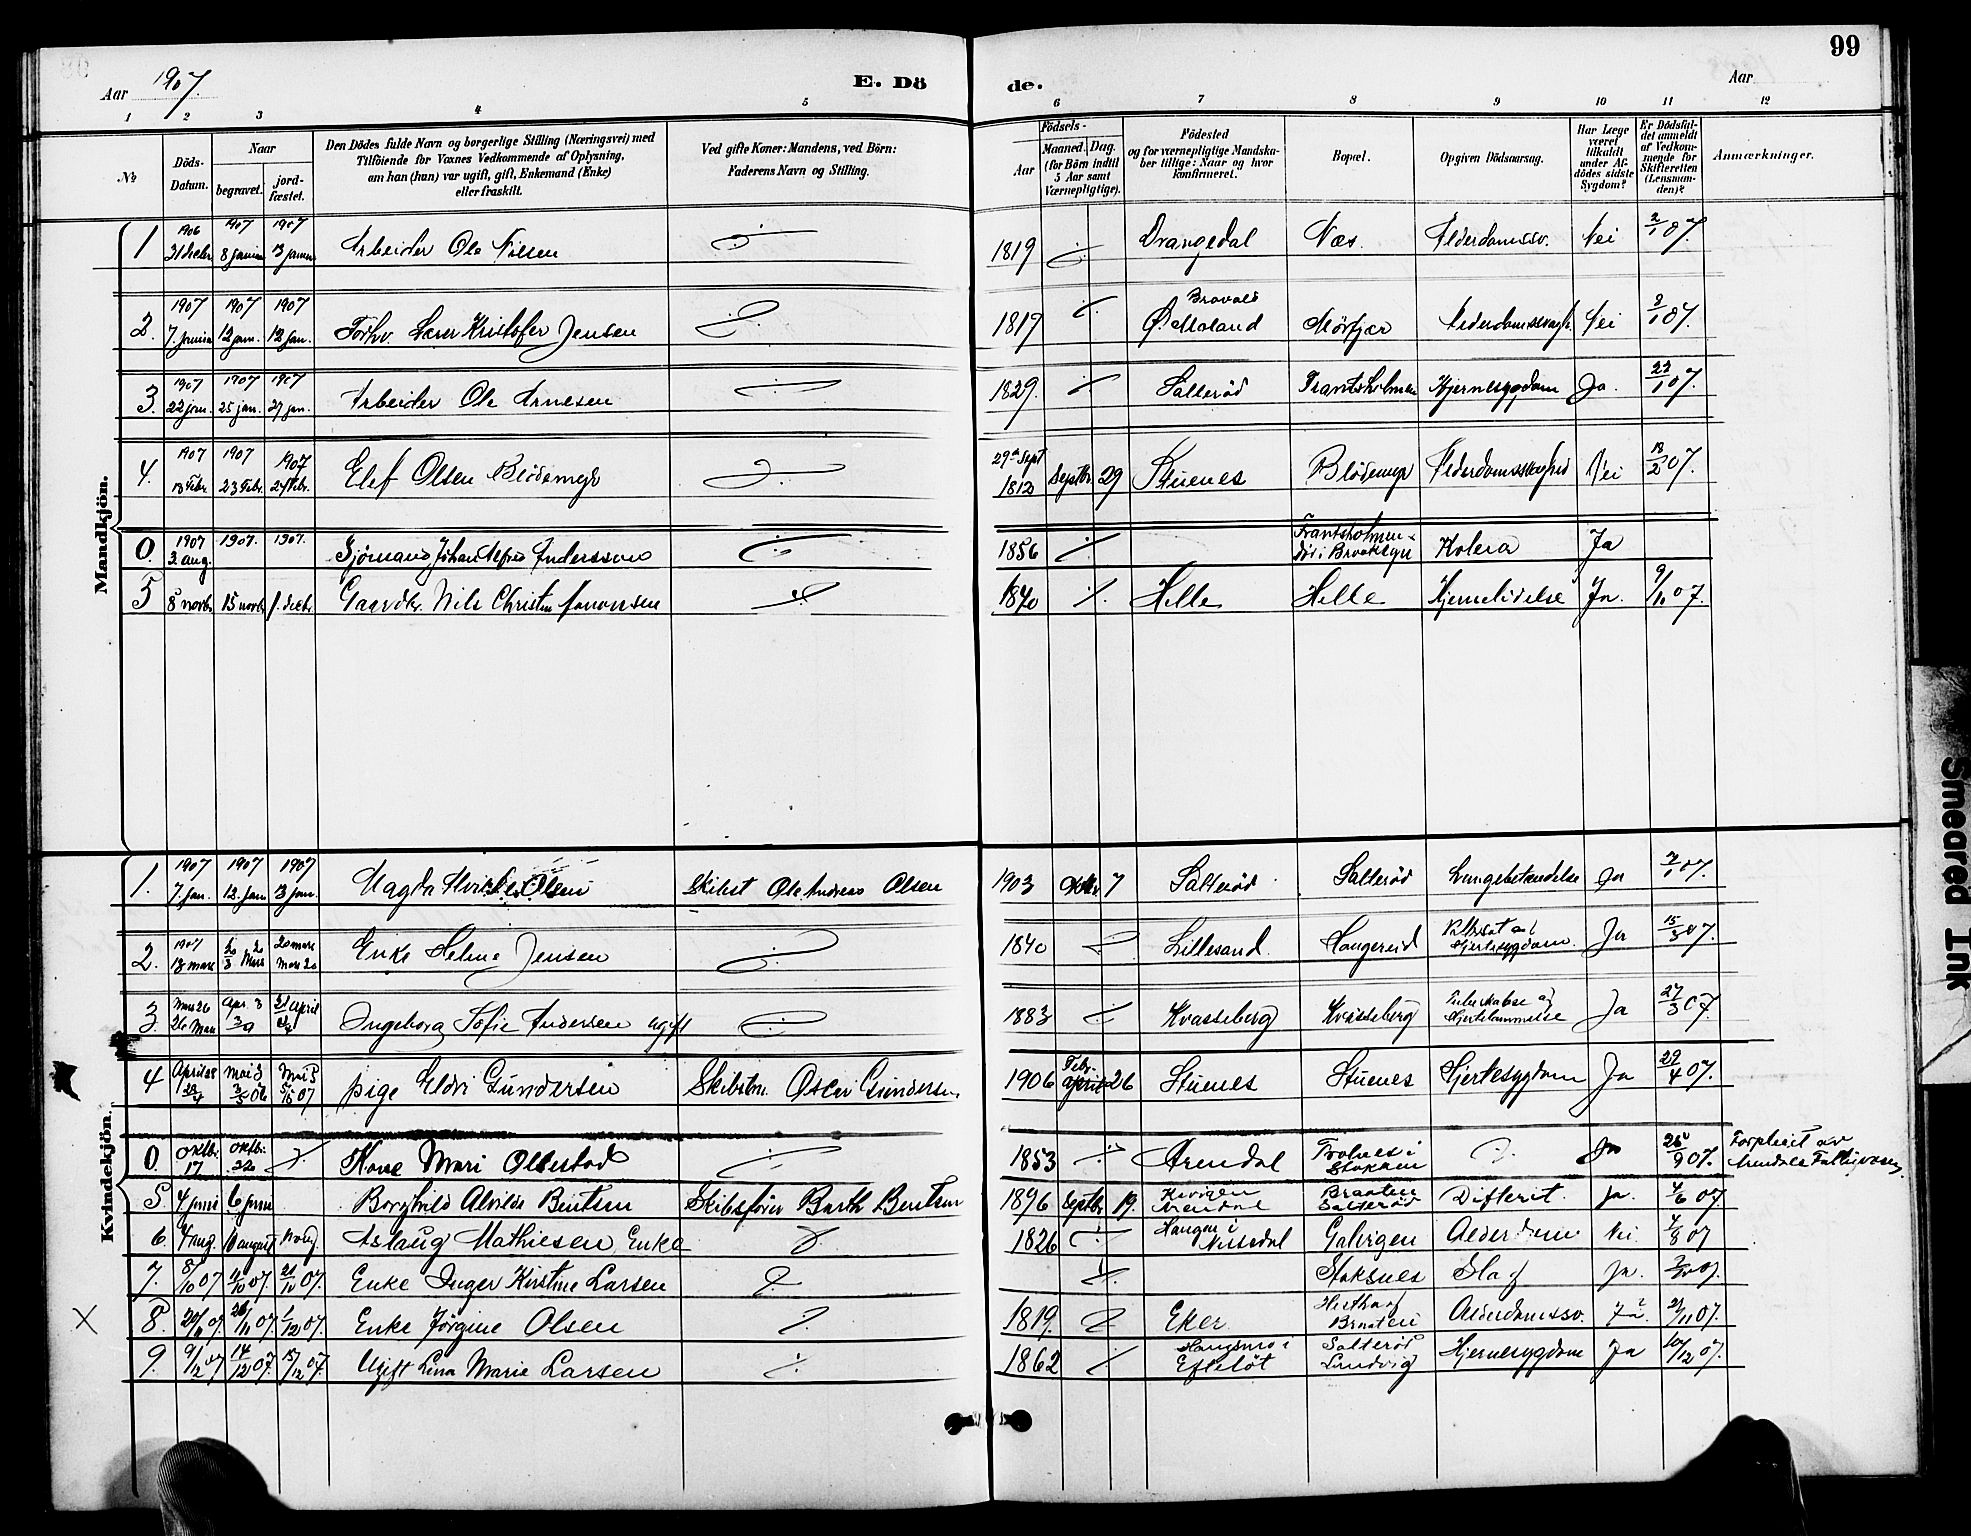 99
Aar 1907. E. Dö de. Aar
1 2 3 4 5 6 7 8 9 10 11 12
№ Döds-Datum. Naar begravet. jord-fæstet. Den Dödes fulde Navn og borgerlige Stilling (Næringsvei) med Tilföiende for Voxnes Vedkommende af Oplysning, om han (hun) var ugift, gift, Enkemand (Enke) eller fraskilt. Ved gifte Koner: Mandens, ved Börn: Faderens Navn og Stilling. Födsels- Aar Maaned. Dag. (for Börn indtil 5 Aar samt Værnepligtige). Födested og for værnepligtige Mandskaber tillige: Naar og hvor konfirmeret. Bopæl. Opgiven Dödsaarsag. Har Læge været tilkaldt under Afdödes sidste Sygdom? Er Dödsfaldet anmeldt af Vedkommende for Skifteretten (Lensmanden)? Anmærkninger.
Mandkjön.
1 1906 1907 1907
31 decbr 8 januar 13 januar Arbeider Ole Nilsen 1819 Drangedal Næs Alderdomssv. Nei 2/1 07.
2. 1907 1907 1907 Bravold
7. januar 12 jan. 12 jan. Forhv. Lærer Kristofer Jensen 1819 Ø. Moland Mörfjær Alderdomssvagh. Nei /1 07.
3. 1907 1907 1907
22 jan. 25 jan. 27 jan. Arbeider Ole Arnesen 1829. Salteröd Frantsholmen Hjernesygdom Ja. 23/1 07.
4. 1907 1907 1907 29de Sept
18 Febr. 23 Febr. 24 Febr. Elef Olsen Blödemyr 1812 Septbr 29 Stuenes Blödemyr Alderdomssvaghed Nei 18/2 07.
0. 1907 1907. 1907. Frantsholmen
3. aug. Sjömand Johan Alfred Anderssen 1856 död i Kolera Ja
5 8 novbr 15 novbr 1. decbr. Gaardbr. Nils Christen Aanonsen 1840 Helle Helle Hjernelidelse Ja. 9/11 07.
Kvindekjön.
1. 1907 1907 1907
7. jan. 12. jan 13 jan. Magda Olsen Skibst Ole Andreas Olsen 1903 Oktbr 7 Salteröd Salteröd Lungebetændelse Ja /1 07.
2. 1907 20 mars
13 mars 20/3 Mars mars 20 Enke Helene Jensen 1840 Lillesand. Haugereid Hjertesygdom. Ja 15/3 07.
3. Mars 26 Apr. 3 21 April
26 Mars Ingeborg Sofie Andersen ugift 1883 Kvasseberg Kvasseberg Tuberkulose og Hjertelammelse Ja 27/3 07.
4 April 28 Mai 3 Mai 5 Febr.
28/4 3/5 06 5/5 07 pige Eldri Gundersen Skibstm. Oscar Gundersen 1906 April 26 Stuenes Stuenes Hjertesygdom Ja 29/4 07.
0. Oktbr. 17 Oktbr. 22 Kone Mari Ollestad 1853 Arendal i Stokken Ja 26/9 07. Forpleiet av Arendals Fattigvæsen
5 4 juni 6 juni Borghild Alvilde Bentsen Skibsförer Barth Bentsen 1896 Septbr 19. Arendal Braaten Salteröd Difterit. ja. 4/6 07.
6. 4 aug. 10 august Aslaug Mathiesen, Enke 1826 Haugen i Nissedal Galvigen Alderdom Nei 4/8 07
7. 8/10 07 11/10 07. 21/10 07. Enke Inger Kirstine Larsen Stoksnes Slag ja. /10 07.
8. 20/11 07 26/11 07. 1/12 07. Enke Jörgine Olsen 1819. Eker Braaten Alderdomssv. Ja? 21/11 07.
9. 9/12 07 14/12 07. 15/12 07. Ugift Lina Marie Larsen 1862 Efteløt Salteröd Lundvig Hjernesygdom Ja 10/12 07.
X
Smeared Ink